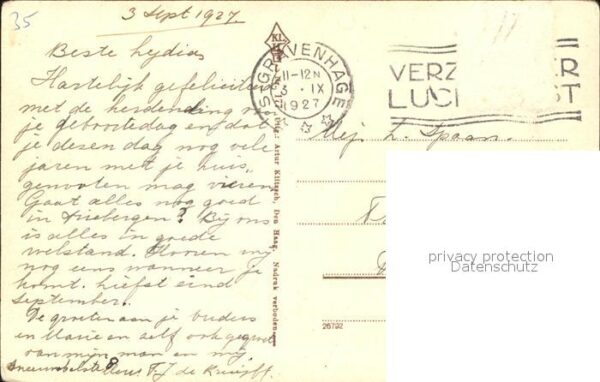 35
3 Sept 1927
Beste Lydia,
Hartelijk gefeliciteerd
met de herdenking v
je geboortedag en dat
je dezen dag nog vele
jaren met je huis-
genooten mag vieren.
Gaat alles nog goed
in Driebergen? Bij ons
is alles in goede
welstand. Hooren wij
nog eens wanneer je
komt. Liefst eind
September.
De groeten aan je ouders
en Marie en zelf ook gegroet
van mijn man en mij.
T. J. de Kruijff
'S GRAVENHAGE
11-12N
3 IX
1927
VERZ R
LUC ST
Uitg.: Artur Klitzsch, Den Haag. Nadruk verboden.
Mej. L. Spaan.
26792
privacy protection
Datenschutz